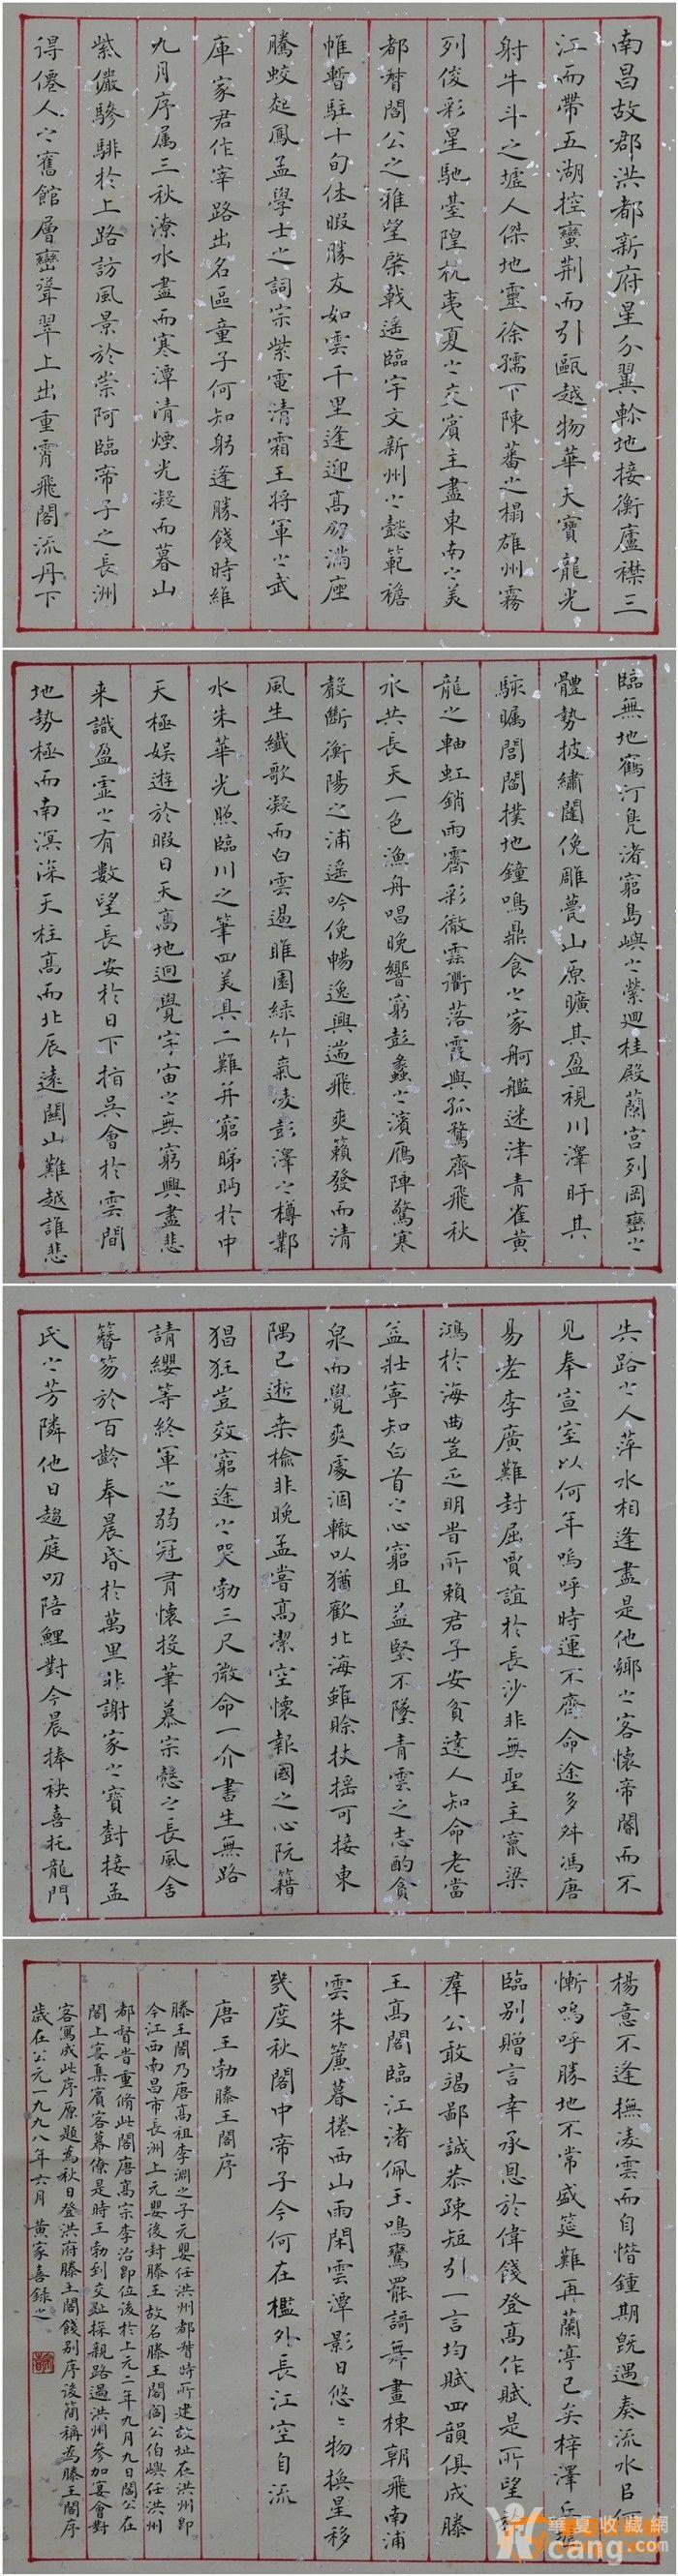 南昌故郡洪都新府星分翼軫地接衡廬襟三
江而帶五湖控蠻荆而引甌越物華天寶龍光
射牛斗之墟人傑地靈徐孺下陳蕃之榻雄州霧
列俊彩星馳臺隍枕夷夏之交賓主盡東南之美
都督閻公之雅望棨戟遥臨宇文新州之懿範襜
帷暫駐十旬休暇勝友如雲千里逢迎高朋滿座
騰蛟起鳳孟學士之詞宗紫電清霜王將軍之武
庫家君作宰路出名區童子何知躬逢勝餞時維
九月序属三秋潦水盡而寒潭清煙光凝而暮山
紫儼驂騑於上路訪風景於崇阿臨帝子之長洲
得僊人之舊館層巒聳翠上出重霄飛閣流丹下
臨無地鶴汀凫渚窮島嶼之縈迴桂殿蘭宫列岡巒之
體勢披繡闥俛雕甍山原曠其盈視川澤盱其
駭矚閭閻撲地鐘鳴鼎食之家舸艦迷津青雀黄
龍之軸虹銷雨霽彩徹雲衢落霞與孤鶩齊飛秋
水共長天一色漁舟唱晚響窮彭蠡之濱鴈陣驚寒
聲斷衡陽之浦遥吟俛暢逸興遄飛爽籟發而清
風生纖歌凝而白雲遏睢園緑竹氣凌彭澤之樽鄴
水朱華光照臨川之筆四美具二難并窮睇眄於中
天極娱遊於暇日天高地迥覺宇宙之無窮興盡悲
来識盈虚之有數望長安於日下指吴會於雲間
地勢極而南溟深天柱高而北辰遠關山難越誰悲
失路之人萍水相逢盡是他鄉之客懷帝閽而不
見奉宣室以何年嗚呼時運不齊命途多舛馮唐
易老李廣難封屈賈誼於長沙非無聖主竄梁
鴻於海曲豈乏明時所賴君子安貧達人知命老當
益壯寧知白首之心窮且益堅不墜青雲之志酌貪
泉而覺爽處涸轍以猶歡北海雖賒扶揺可接東
隅已逝桑榆非晚孟嘗高潔空懷報國之心阮籍
猖狂豈效窮途之哭勃三尺微命一介書生無路
請纓等終軍之弱冠有懷投筆慕宗慤之長風舍
簪笏於百齡奉晨昏於萬里非謝家之寶樹接孟
氏之芳隣他日趨庭叨陪鯉對今晨捧袂喜托龍門
楊意不逢撫凌雲而自惜鍾期既遇奏流水以何
慚嗚呼勝地不常盛筵難再蘭亭已矣梓澤丘墟
臨别贈言幸承恩於偉餞登高作賦是所望於
羣公敢竭鄙誠恭疎短引一言均賦四韻俱成滕
王高閣臨江渚佩玉鳴鸞罷歌舞畫棟朝飛南浦
雲朱簾暮捲西山雨閑雲潭影日悠々物换星移
幾度秋閣中帝子今何在檻外長江空自流
唐王勃滕王閣序
滕王閣乃唐高祖李淵之子元嬰任洪州都督時所建故址在洪州即
今江西南昌市長洲上元嬰後封滕王故名滕王閣閻公伯嶼任洪州
都督時重脩此閣唐高宗李治即位後於上元二年九月九日閻公在
閣上宴集賓客幕僚是時王勃到交趾探親路過洪州參加宴會對
客寫成此序原題為秋日登洪府滕王閣餞别序後簡稱為滕王閣序
歲在公元一九九八年六月 黄家喜録之
華夏收藏網
cang.com